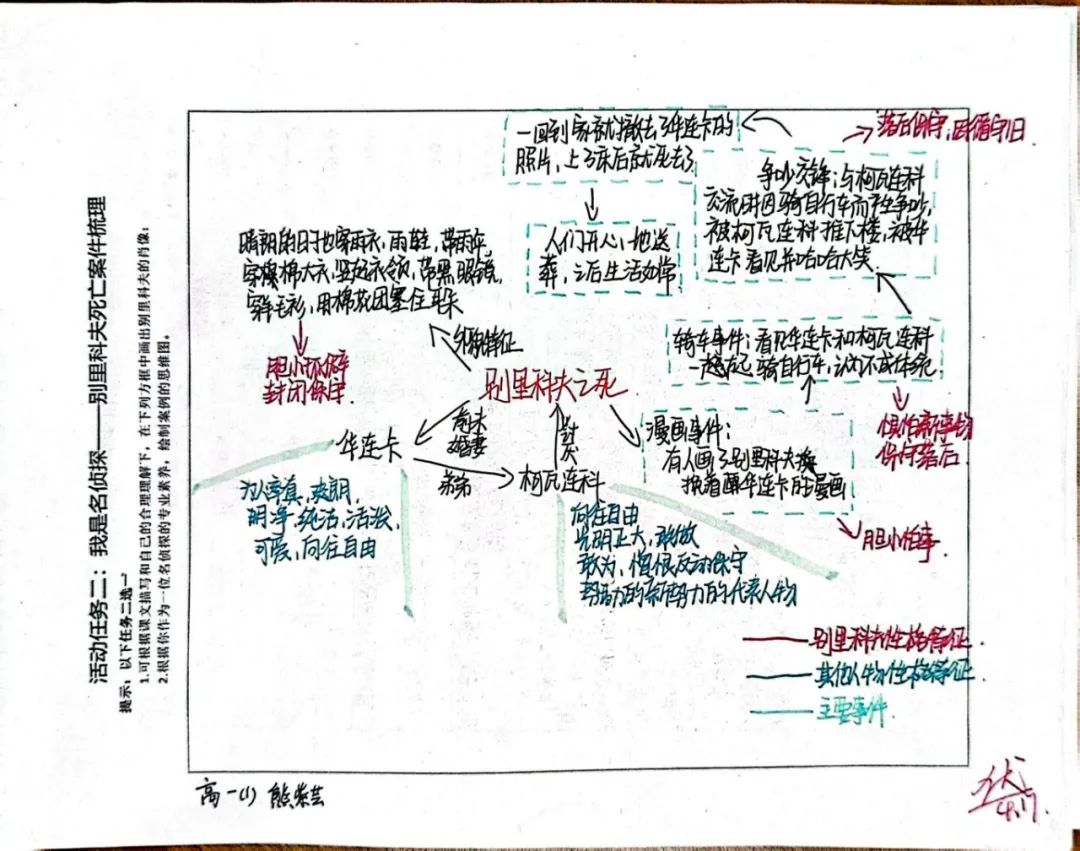 活动任务二：我是名侦探——别里科夫死亡案件梳理
提示：以下任务二选一
1.可根据课文描写和自己的合理理解，在下列方框中画出别里科夫的肖像；
2.根据你作为一位名侦探的专业素养，绘制案例的思维图。
一回到家就撤去了华连卡的
照片，上了床后就死去了
落后保守，因循守旧
争吵交锋：与柯瓦连科
交流时因骑自行车而产生争吵，
被柯瓦连科推下楼，被华
连卡看见并哈哈大笑
人们开心地送
葬，之后生活如常
晴朗的日子也穿雨衣，雨鞋，带雨伞，
穿棉大衣，竖起衣领，带黑眼镜，
穿羊毛衫，用棉花团塞住耳朵
外貌特征
胆小孤僻
封闭保守
骑车事件：看见华连卡和柯瓦连科
一起骑自行车，认为不成体统
惧怕新事物
保守落后
别里科夫之死
漫画事件：
有人画了别里科夫挽
着华连卡的漫画
胆小怕事
华连卡
未婚妻
姐弟
讨厌
柯瓦连科
为人率真，爽朗，
明净，纯洁，活泼，
可爱，向往自由
向往自由
光明正大，敢做
敢为，憎恨反动保守
势力的新势力的代表人物
别里科夫性格特征
其他人物性格特征
主要事件
高一(1) 熊紫芸